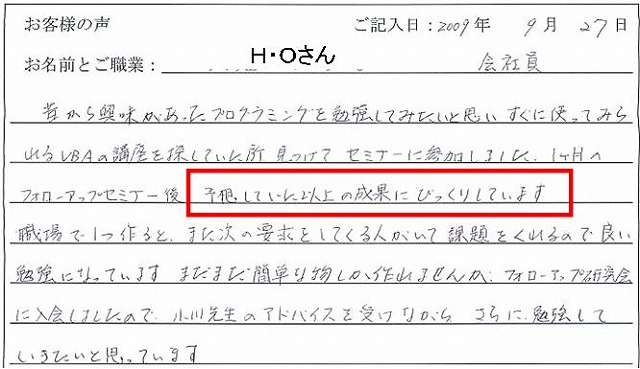 お客様の声 ご記入日:2009年 9月 27日
お名前とご職業: H・Oさん 会社員
昔から興味があったプログラミングを勉強してみたいと思い すぐに使ってみら
れるVBAの講座を探していた所 見つけて セミナーに参加しました、1ヶ月の
フォローアップセミナー後 予想していた以上の成果にびっくりしています
職場で1つ作ると、また次の要求をしてくる人がいて 課題をくれるので良い
勉強になっています まだまだ簡単な物しか作れませんが、フォローアップ研究会
に入会しましたので 小川先生のアドバイスを受けながら さらに、勉強して
いきたいと思っています